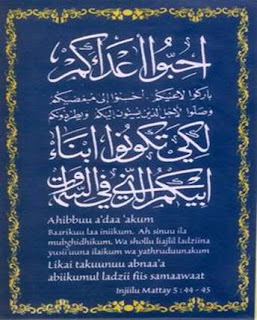 احبّوا اعداءكم
باركوا لاعنيكم. احسنوا الى مبغضيكم
وصلّوا لاجل الذين يسيئون اليكم ويطردونكم
لكي تكونوا ابناء
ابيكم الذي في السموات
Ahibbuu a'daa 'akum
Baarikuu laa iniikum. Ah sinuu ila
mubghidhikum. Wa shollu liajlil ladziina
yusii'uuna ilaikum wa yathruduunakum
Likai takuunuu abnaa'a
abiikumul ladzii fiis samaawaat
Injiilu Mattay 5 : 44 - 45